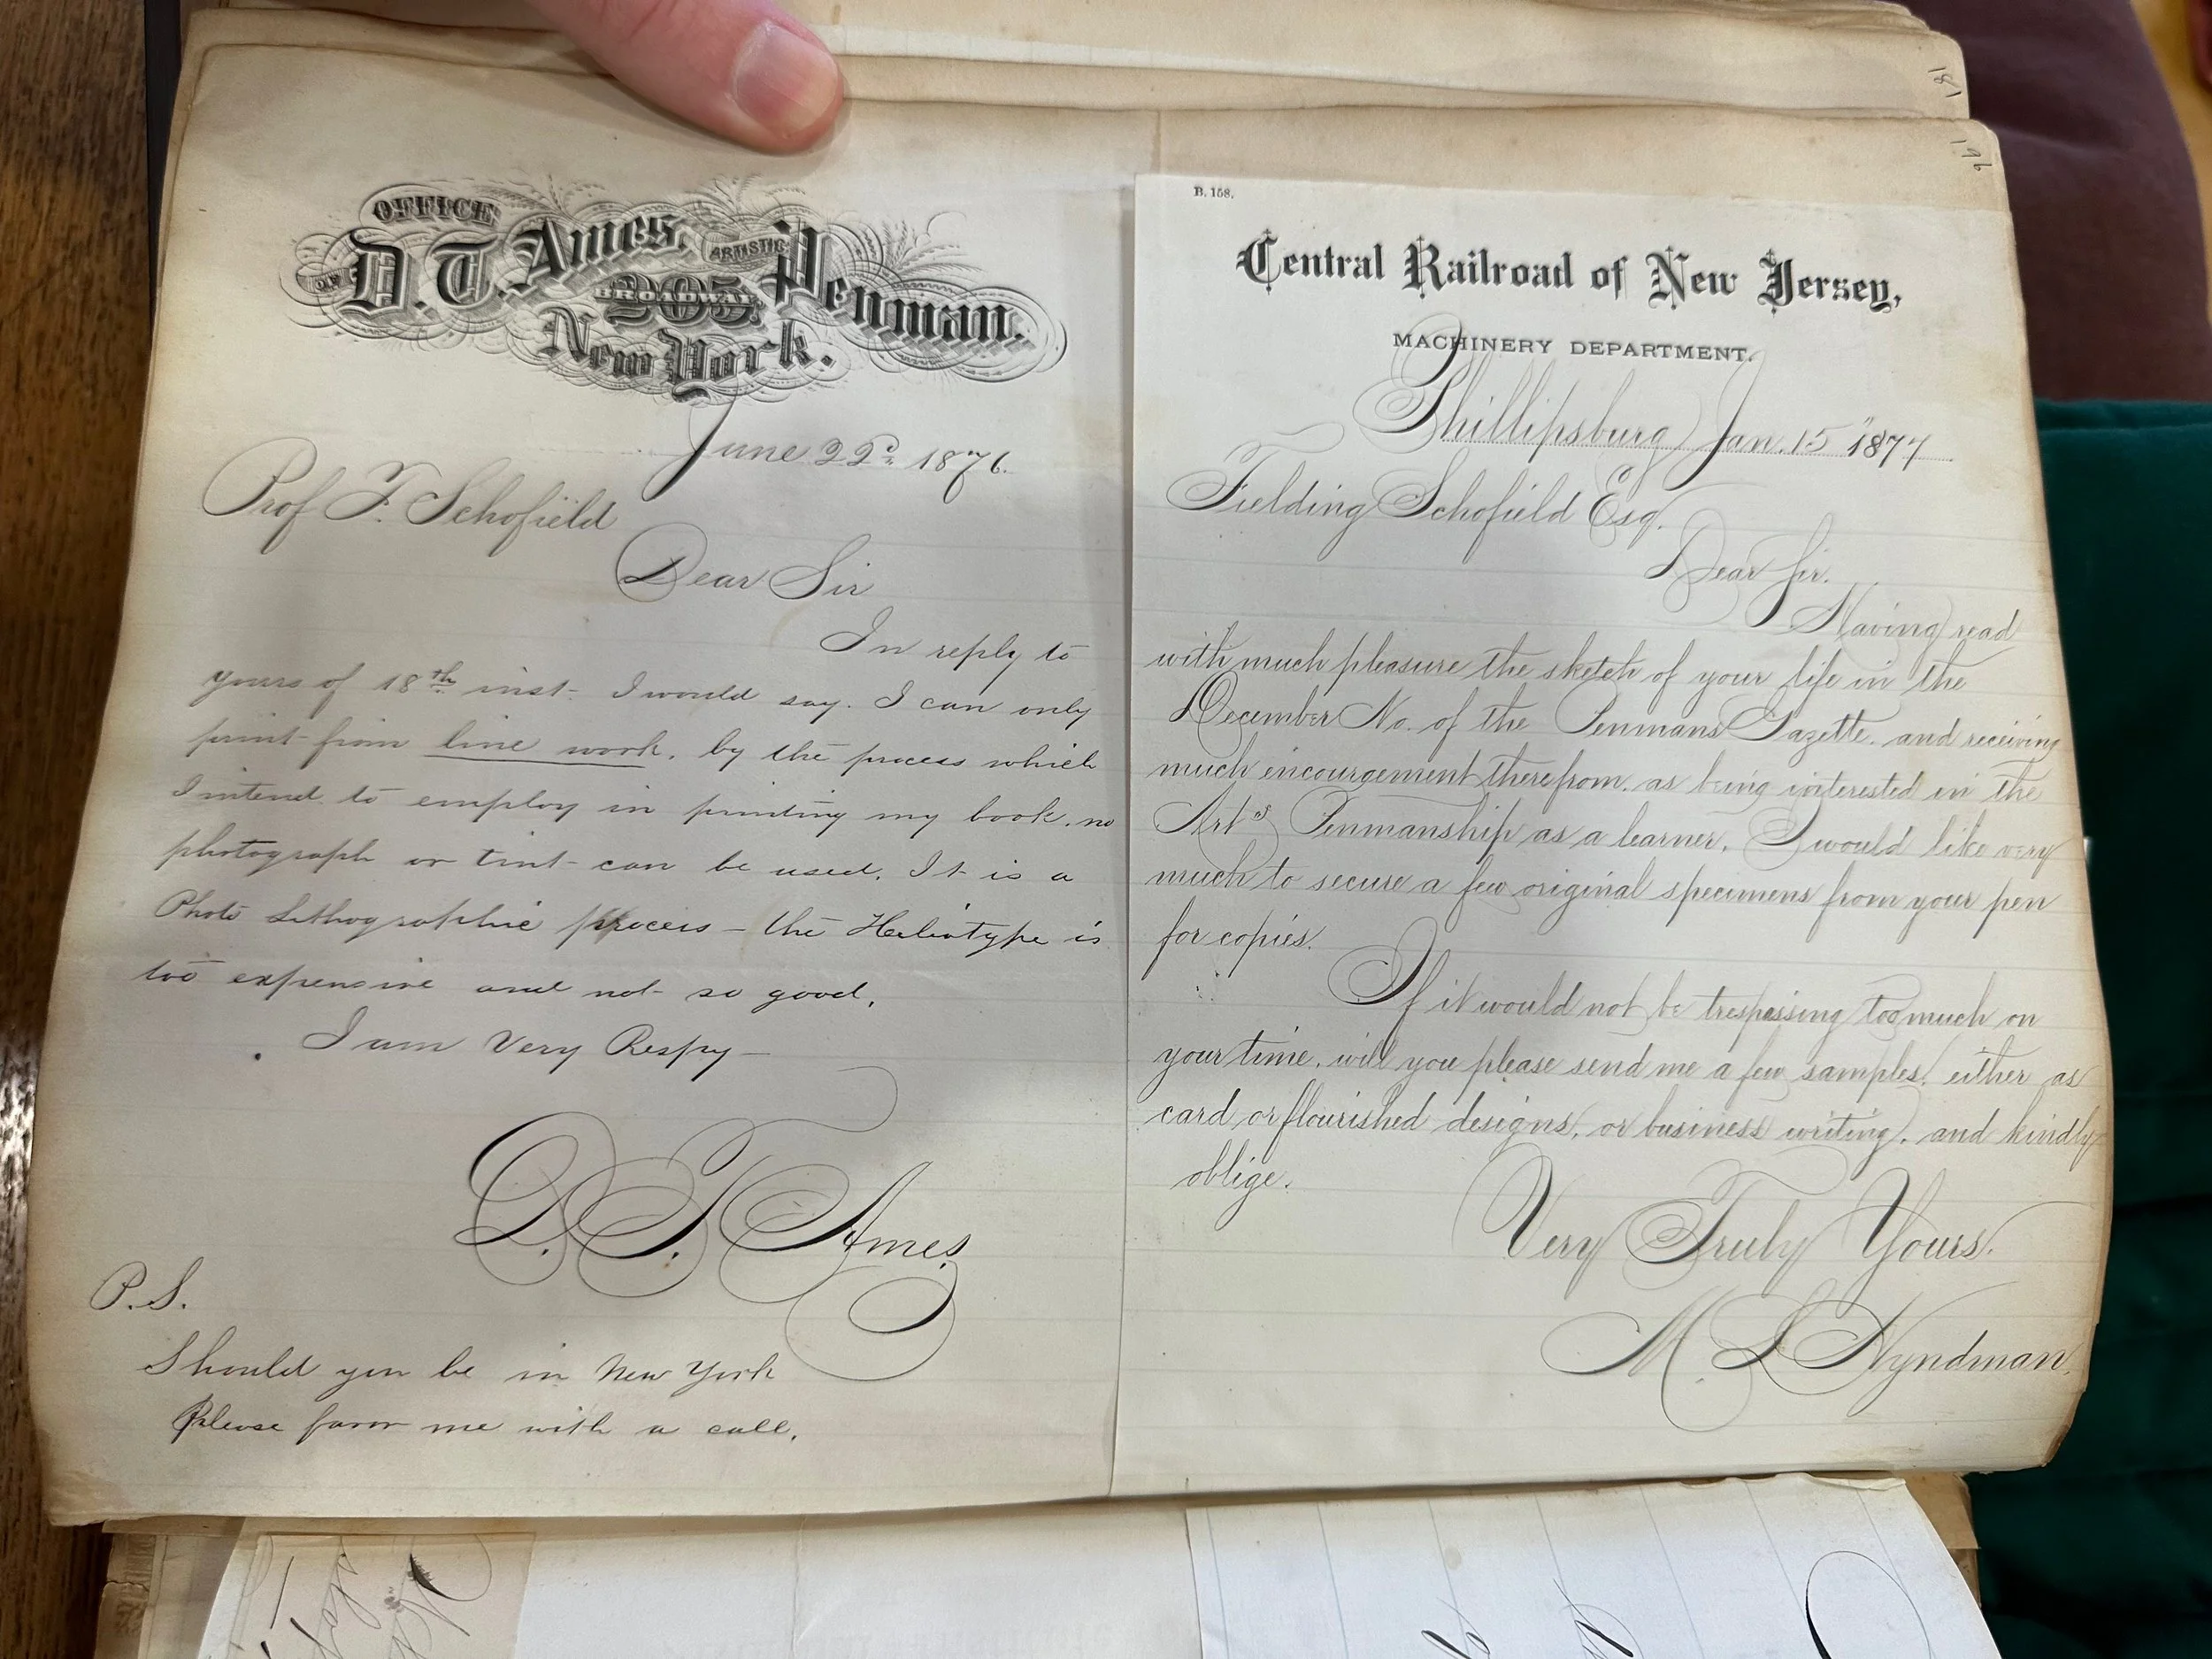 OFFICE
OF D. T. Ames, ARTISTIC Penman.
BROADWAY
205
New York.
June 22d. 1876.
Prof F. Schofield
Dear Sir
In reply to
yours of 18th inst- I would say. I can only
print from line work, by the process which
I intend to employ in printing my book. no
photograph or tint can be used. It is a
Photo Lithographic process - the Heliotype is
too expensive and not so good.
I am Very Respy-
D. T. Ames.
P.S.
Should you be in New York
Please favor me with a call.
B. 158.
Central Railroad of New Jersey,
MACHINERY DEPARTMENT.
Phillipsburg Jan. 15" 1877
Fielding Schofield Esq.
Dear Sir.
Having read
with much pleasure the sketch of your life in the
December No. of the Penmans Gazette. and receiving
much encourgement therefrom, as being interested in the
Art of Penmanship as a learner, I would like very
much to secure a few original specimens from your pen
for copies.
If it would not be trespassing too much on
your time, will you please send me a few samples, either as
card or flourished designs, or business writing, and kindly
oblige.
Very Truly Yours.
M. L. Hyndman.
181
196